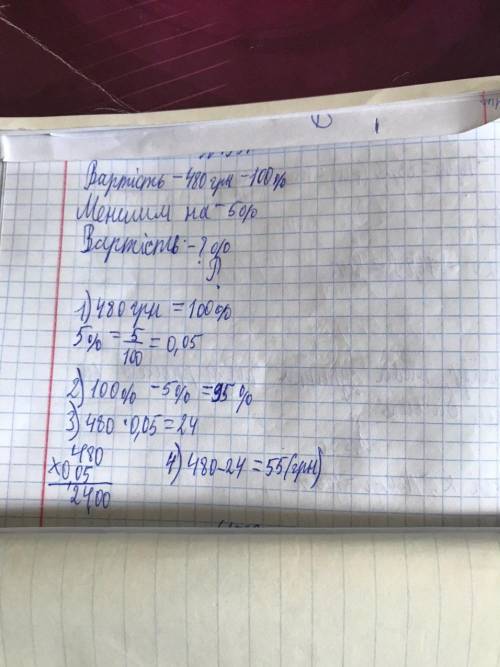 Вартість - 480 грн - 100%
Меншим на - 5%
Вартість - ? %
?
1) 480 грн = 100%
5% = 5/100 = 0,05
2) 100% - 5% = 95%
3) 480 · 0,05 = 24
480
×0 05
2400
4) 480 - 24 = 55 (грн)